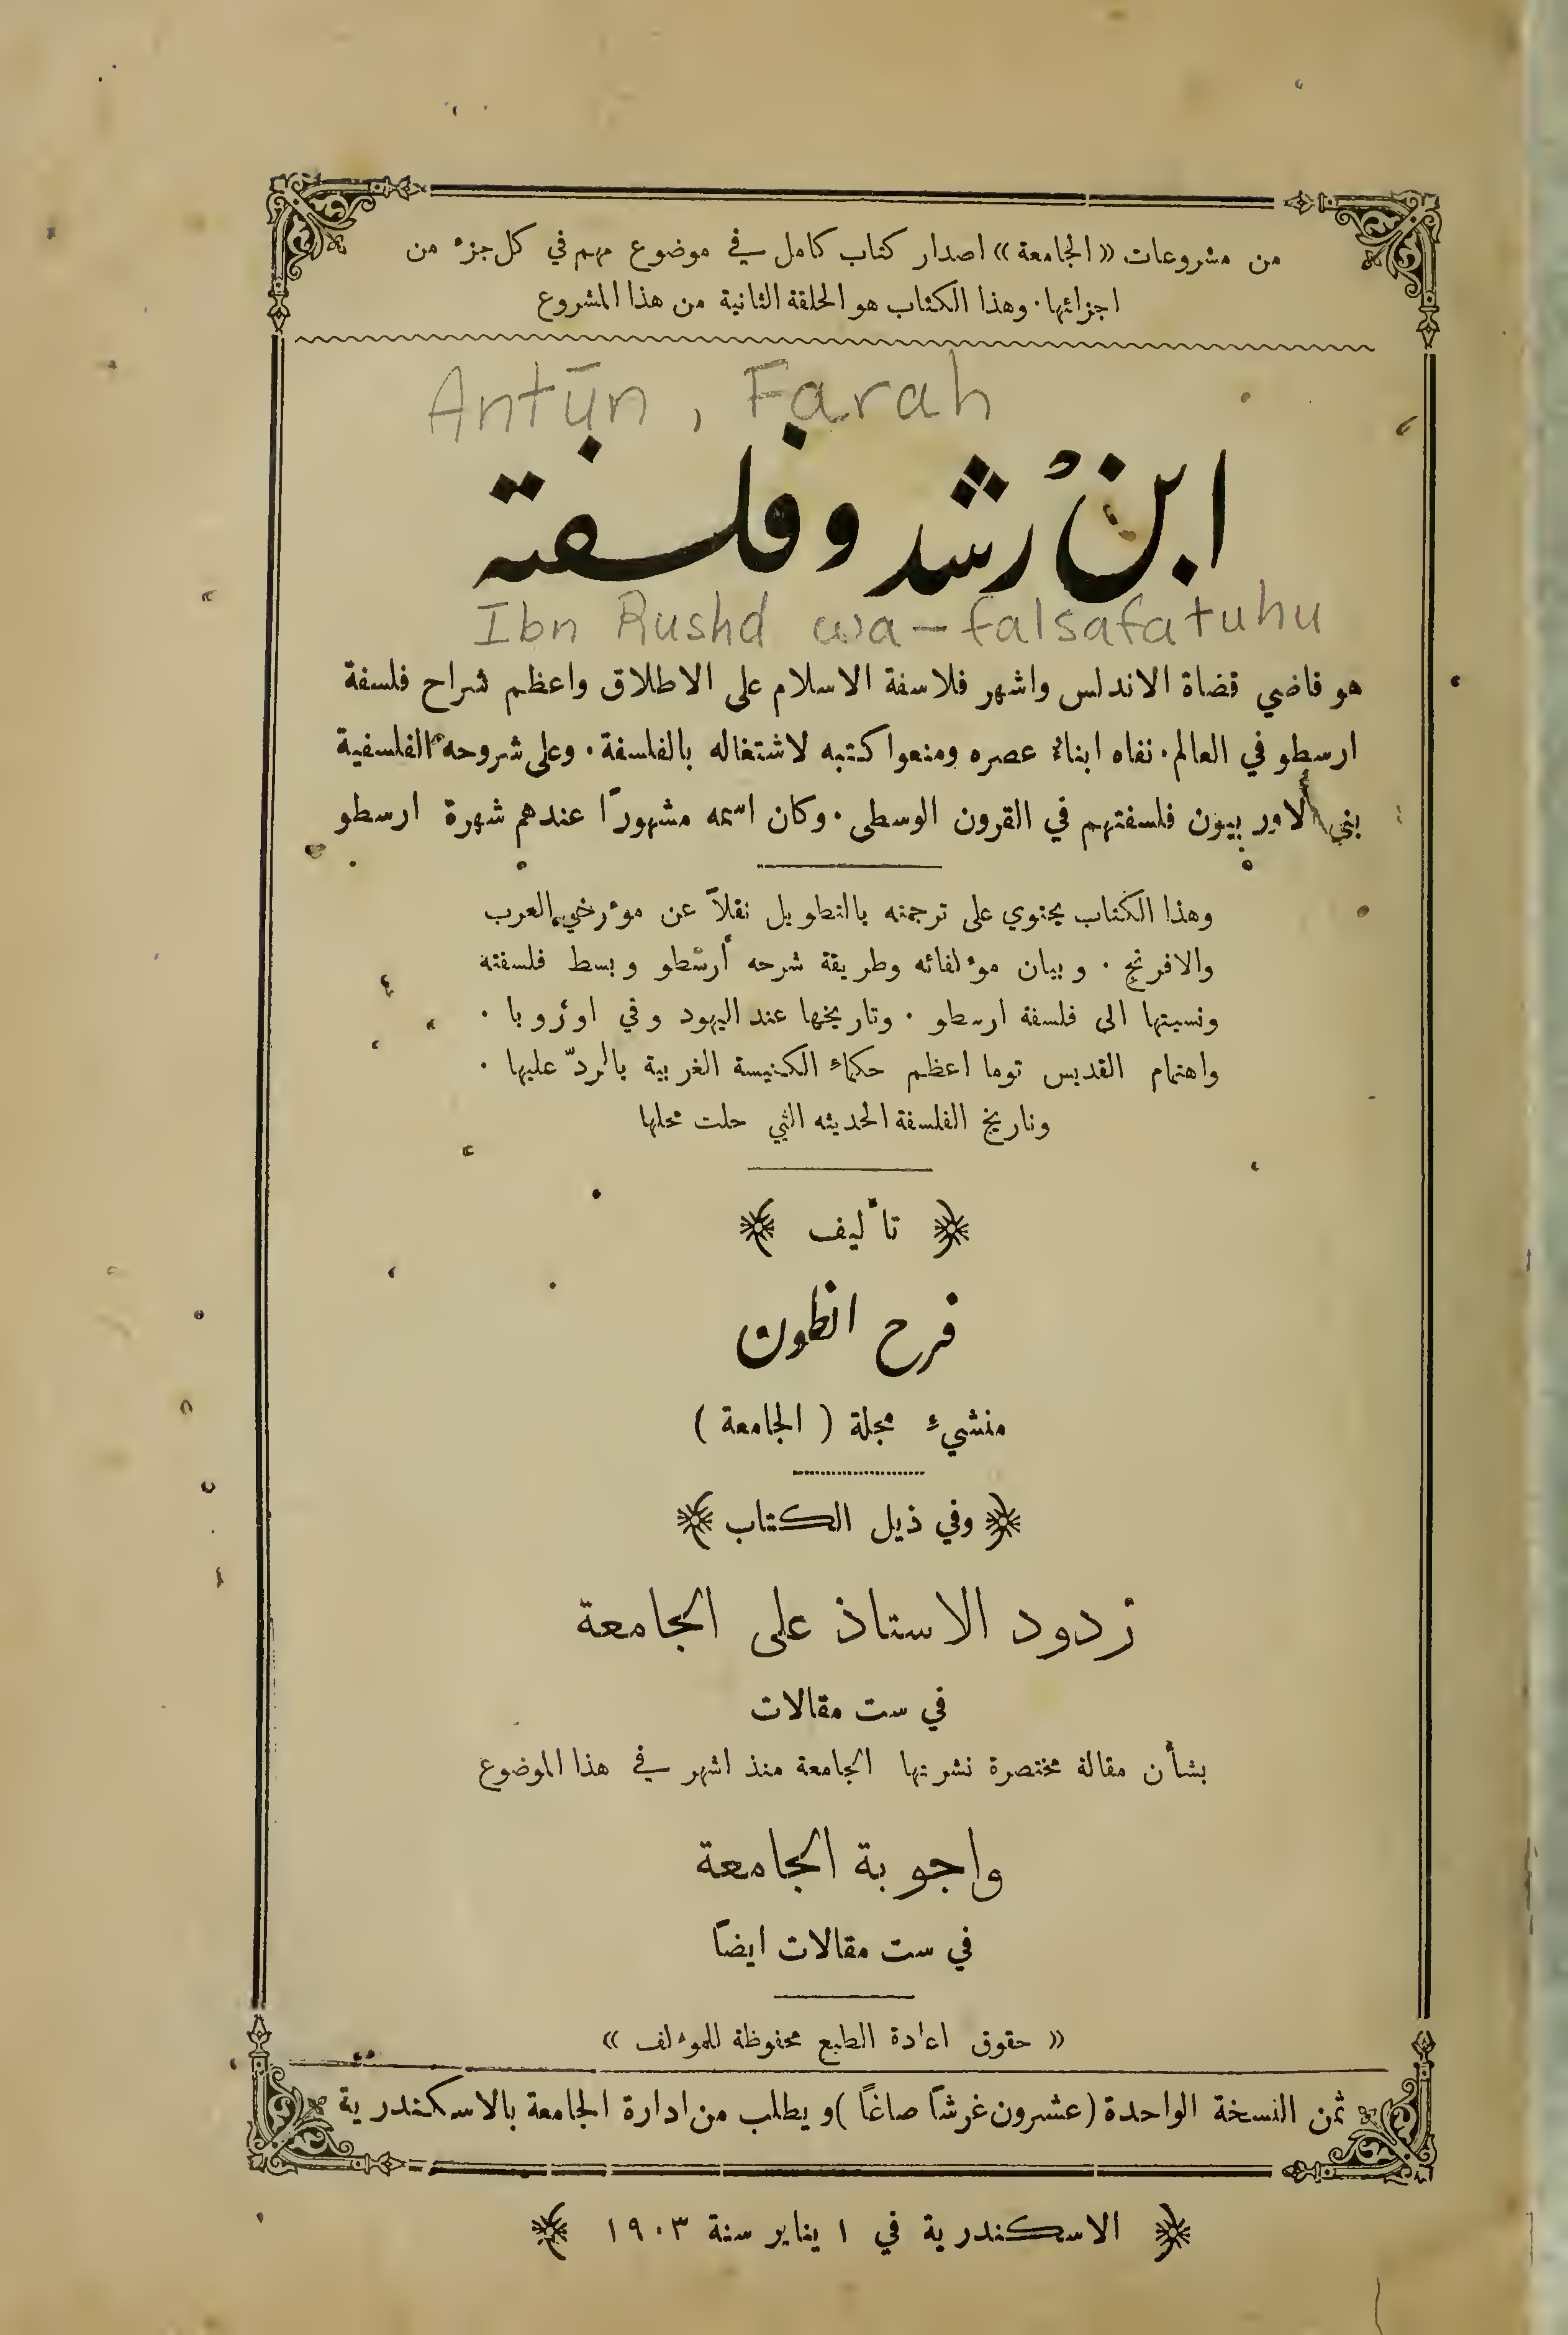 من مشروعات «الجامعة» اصدار كتاب كامل في موضوع مهم في كل جزء من
اجزائها. وهذا الكتاب هو الحلقة الثانية من هذا المشروع
Antūn, Farah
ابن رشد وفلسفته
Ibn Rushd wa-falsafatuhu
هو قاضي قضاة الاندلس واشهر فلاسفة الاسلام على الاطلاق واعظم شراح فلسفة
ارسطو في العالم. نفاه ابناء عصره ومنعوا كتبه لاشتغاله بالفلسفة. وعلى شروحه الفلسفية
بنى الاوربيون فلسفتهم في القرون الوسطى. وكان اسمه مشهورًا عندهم شهرة ارسطو
وهذا الكتاب يحتوي على ترجمته بالتطويل نقلاً عن مؤرخي العرب
والافرنج. وبيان مؤلفاته وطريقة شرحه أرسطو وبسط فلسفته
ونسبتها الى فلسفة ارسطو. وتاريخها عند اليهود وفي اوروبا.
واهتمام القديس توما اعظم حكماء الكنيسة الغربية بالردّ عليها.
وتاريخ الفلسفة الحديثه التي حلت محلها
﴿ تأليف ﴾
فرح انطون
منشيء مجلة (الجامعة)
﴿ وفي ذيل الكتاب ﴾
ردود الاستاذ على الجامعة
في ست مقالات
بشأن مقالة مختصرة نشرتها الجامعة منذ اشهر في هذا الموضوع
واجوبة الجامعة
في ست مقالات ايضاً
«حقوق اعادة الطبع محفوظة للمؤلف»
ثمن النسخة الواحدة (عشرون غرشاً صاغاً) ويطلب من ادارة الجامعة بالاسكندرية
﴿ الاسكندرية في ١ يناير سنة ١٩٠٣ ﴾